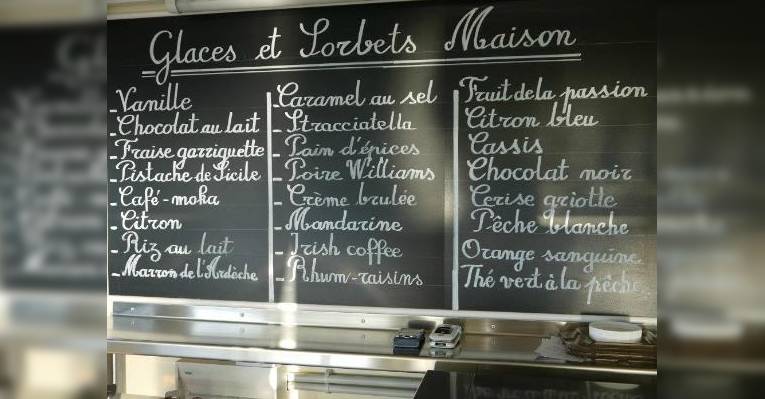 Glaces et Sorbets Maison
-Vanille
-Chocolat au lait
-Fraise garriguette
-Pistache de Sicile
-Café-moka
-Citron
-Riz au lait
-Marron de l'Ardèche
-Caramel au sel
-Stracciatella
-Pain d'épices
-Poire Williams
-Crème brulée
-Mandarine
-Irish coffee
-Rhum-raisins
Fruit de la passion
Citron bleu
Cassis
Chocolat noir
Cerise griotte
Pêche blanche
Orange sanguine
Thé vert à la pêche